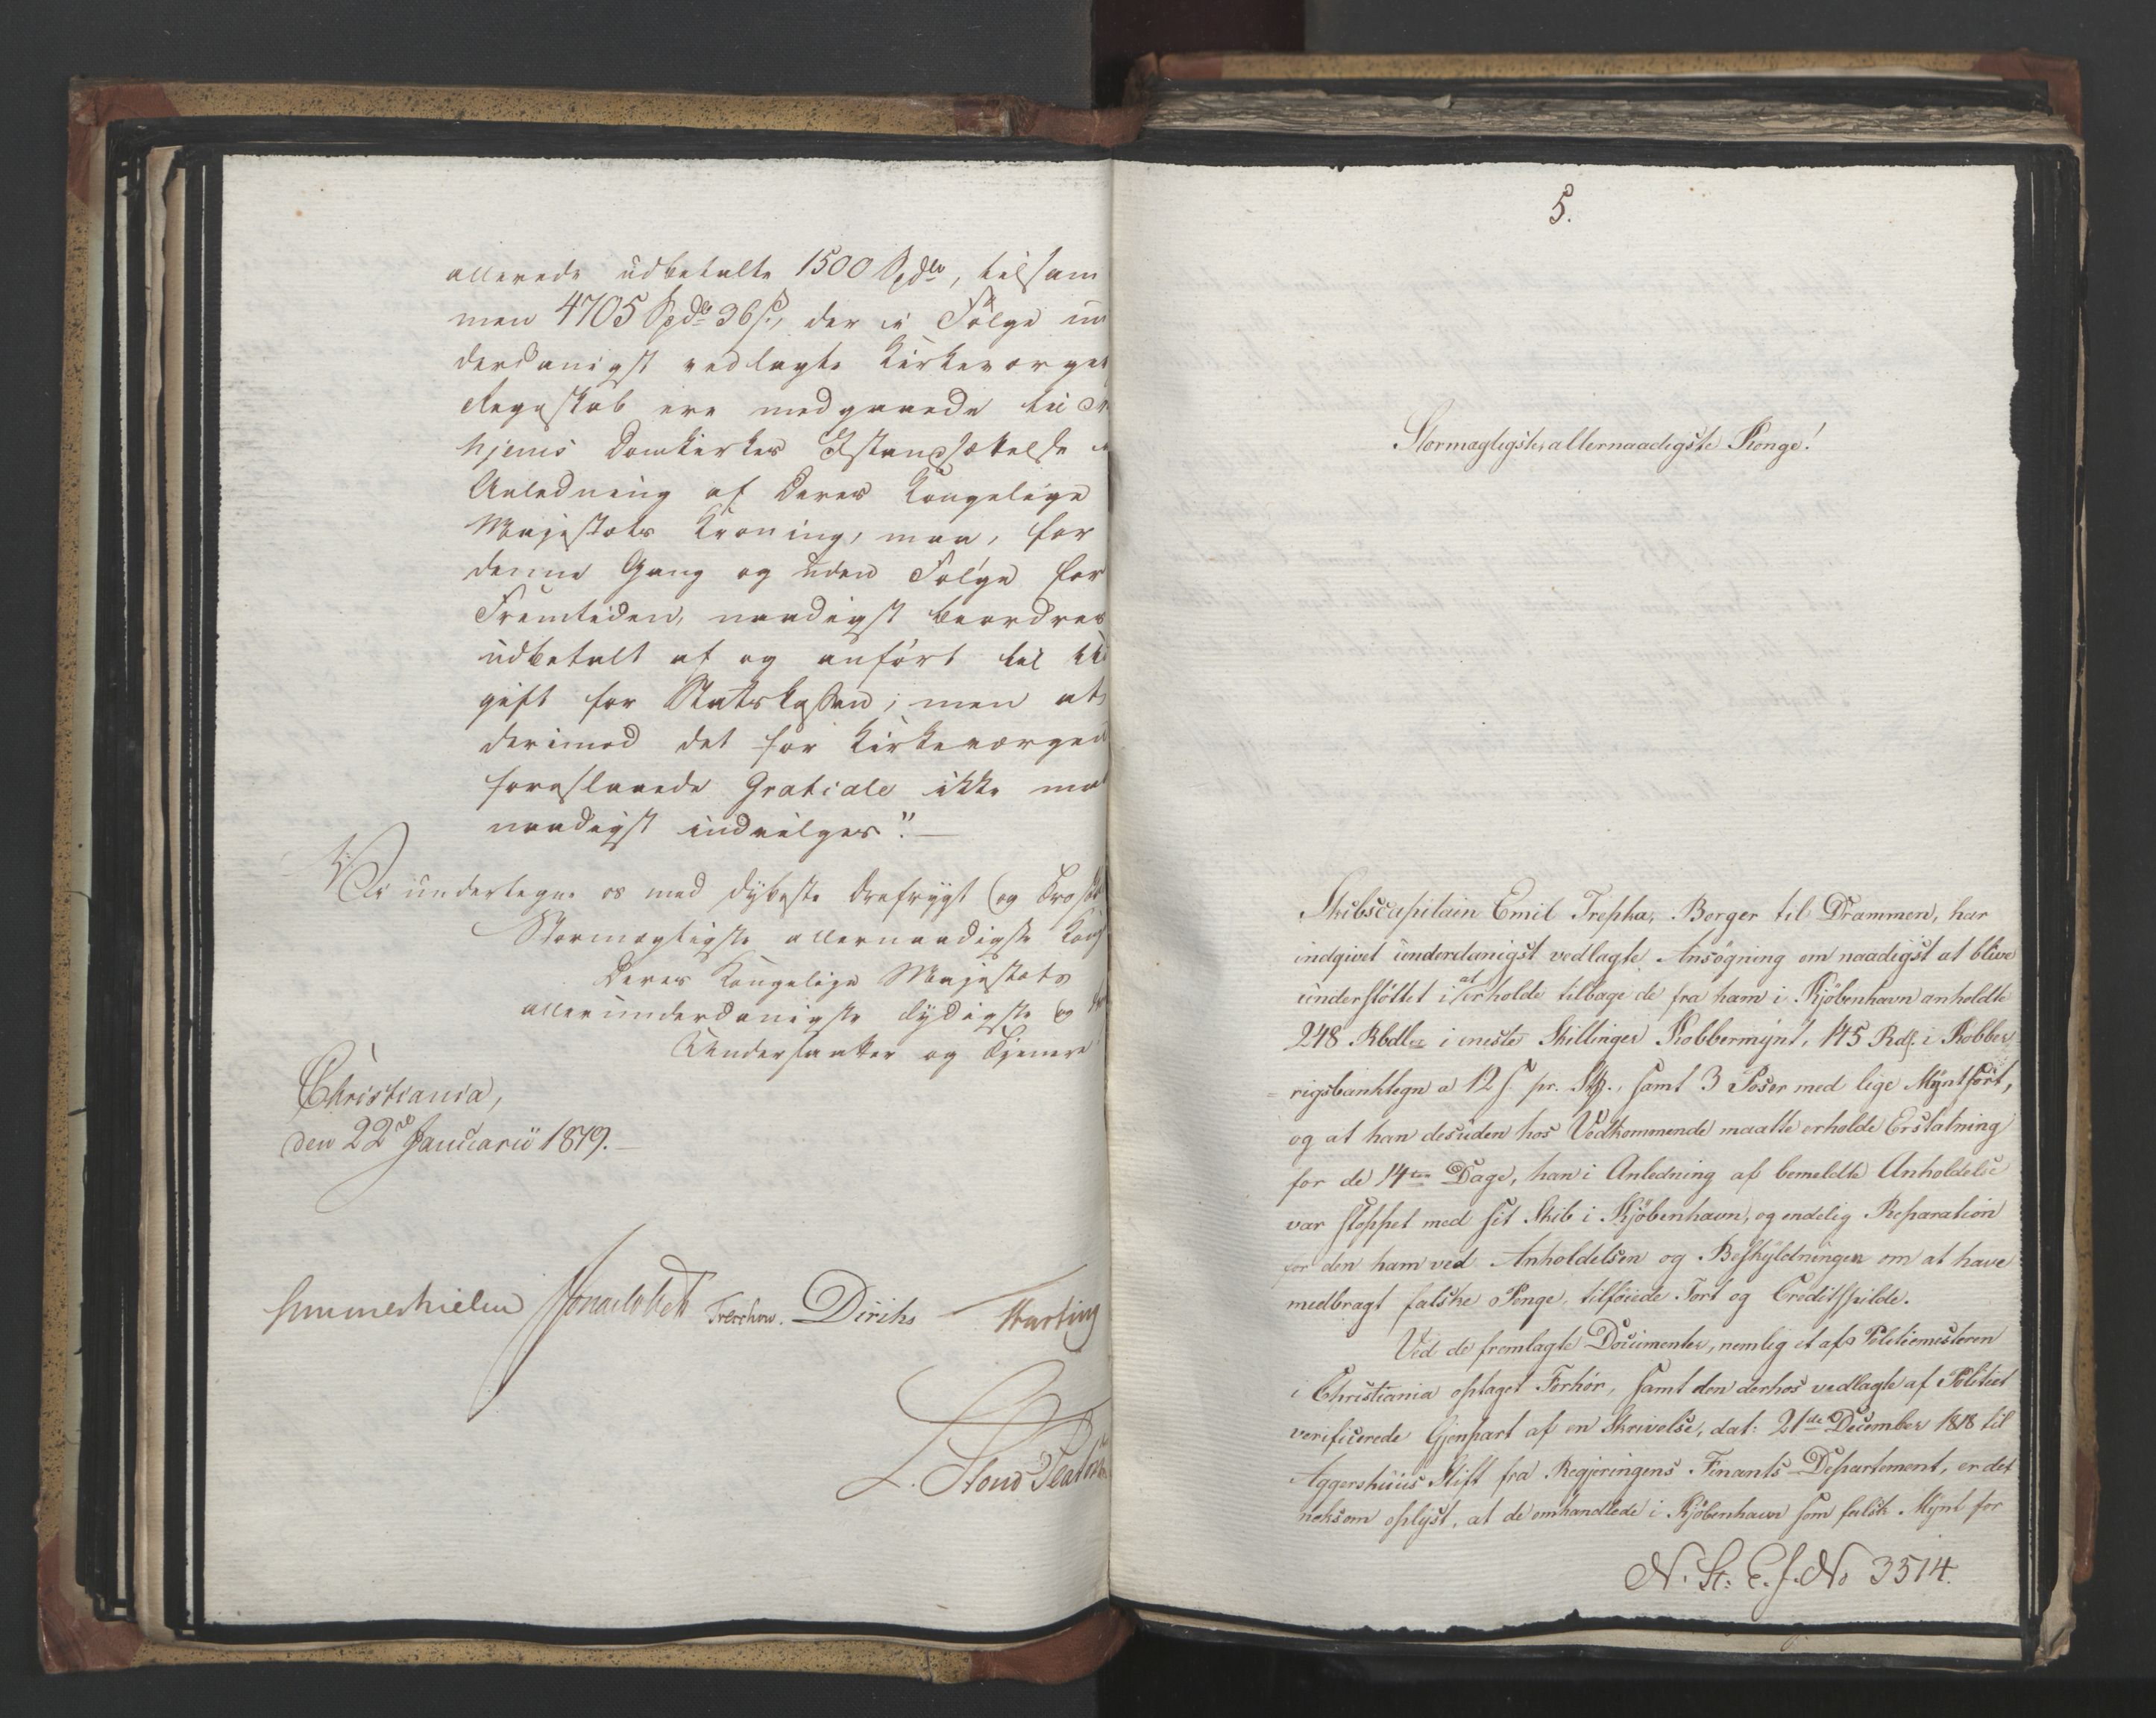 allerede udbetalte 1500 Spdlr, tilsam
men 4705 Spdlr 36 s., der i Følge un
derdanigst vedlagte Kirkeværgens
Regnskab ere medgaaede til
hjems Domkirkes Istandsættelse i
Anledning af Deres Kongelige
Majestæts Kroning, maa, for
denne Gang og uden Følge for
Fremtiden, naadigst beordres
udbetalt af og anført til Ud
gift for Statskassen; men at
derimod det for Kirkeværgen
foreslaaede Gratiale ikke maa
naadigst indvilges". —
Vi undertegne os med dybeste Ærefrygt og Troskab
Stormægtigste allernaadigste Konge
Deres Kongelige Majestæts
allerunderdanigste lydigste og
Undersaatter og Tjenere
Christiania,
den 22de Januarii 1819. —
Sommerhielm Treschow. Diriks
L. Stoud Platou
5.
Stormægtigste, allernaadigste Konge!
Skibscapitain Emil Trepka, Borger til Drammen, har
indgivet underdanigst vedlagte Ansøgning om naadigst at blive
understøttet i at erholde tilbage de fra ham i Kjøbenhavn anholdte
248 Rbdler i eneste Skillinger Kobbermynt, 145 Rdl. i Kobber
rigsbanktegn a 12 s. pr. Stk., samt 3 Poser med lige Myntsort,
og at han desuden hos Vedkommende maatte erholde Erstatning
for de 14ten Dage, han i Anledning af bemeldte Anholdelse
var stoppet med sit Skib i Kjøbenhavn, og endelig Reparation
for den ham ved Anholdelsen og Beskyldningen om at have
medbragt falske Penge, tilføiede Tort og Creditspilde.
Ved de fremlagte Documenter, nemlig et af Politiemesteren
i Christiania optaget Forhør, samt den derhos vedlagte af Politiet
verificerede Gjenpart af en Skrivelse, dat: 21de December 1818 til
Aggershuus Stift fra Regjeringens Finants-Departement, er det
noksom oplyst, at de omhandlede i Kjøbenhavn som falsk Mynt for
N. St: E. J. No 3514.